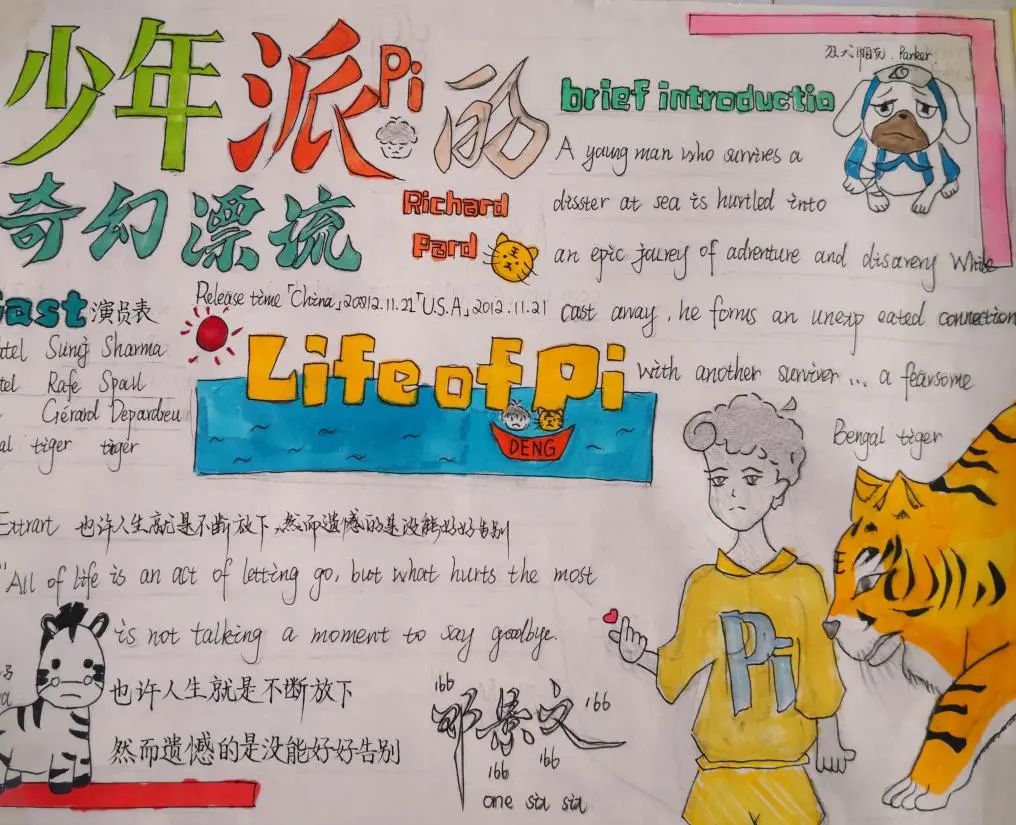 少年派Pi的
奇幻漂流
Richard
Pard
brief introductio
Parker
A young man who survives a
disster at sea is hurtled into
an epic jourey of adrenture and disarery While
cast away, he forms an unexp eated connection
with another surviver... a fearsome
Bengal tiger
Cast 演员表
Release time「China」2012.11.22「U.S.A」2012.11.21
tel Suraj Sharma
tel Rafe Spall
Gérard Depardieu
al tiger tiger
Life of Pi
DENG
Extrart 也许人生就是不断放下,然而遗憾的是没能好好告别
"All of life is an act of letting go, but what hurts the most
is not talking a moment to say goodbye.
也许人生就是不断放下
然而遗憾的是没能好好告别
166
166
166
166
one six six
Pi